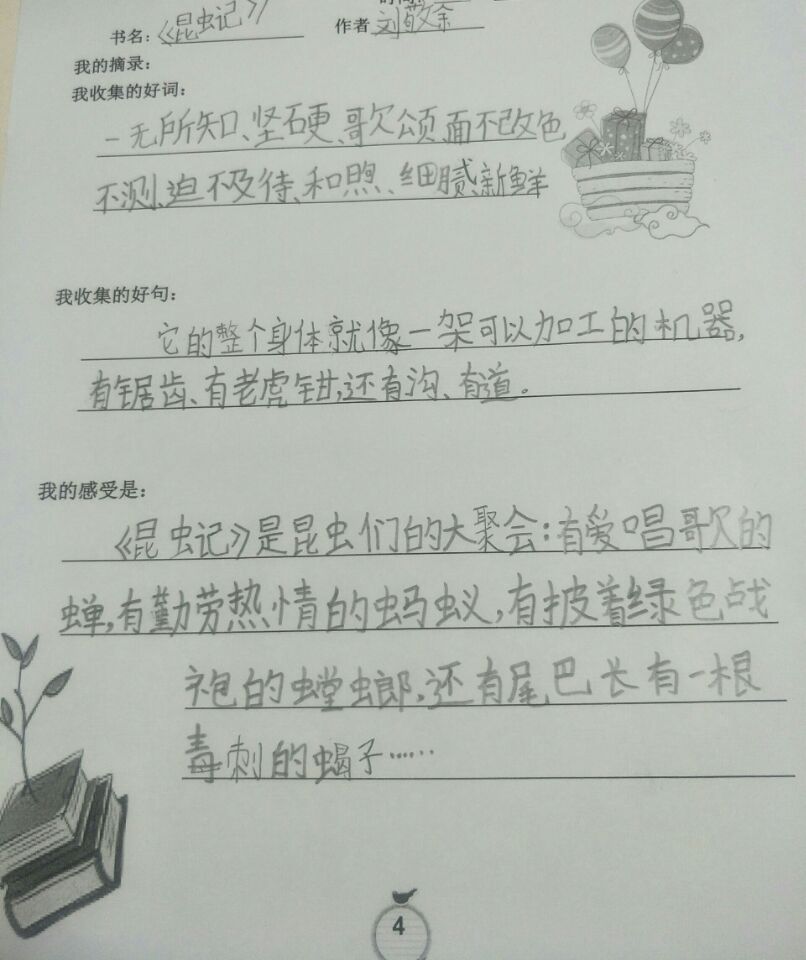 书名：《昆虫记》 作者 刘敬余
我的摘录：
我收集的好词：
一无所知、坚硬、歌颂、面不改色
不测、迫不及待、和煦、细腻、新鲜
我收集的好句：
它的整个身体就像一架可以加工的机器，
有锯齿、有老虎钳，还有沟、有道。
我的感受是：
《昆虫记》是昆虫们的大聚会：有爱唱歌的
蝉，有勤劳热情的蚂蚁，有披着绿色战
袍的螳螂，还有尾巴长有一根
毒刺的蝎子……
4